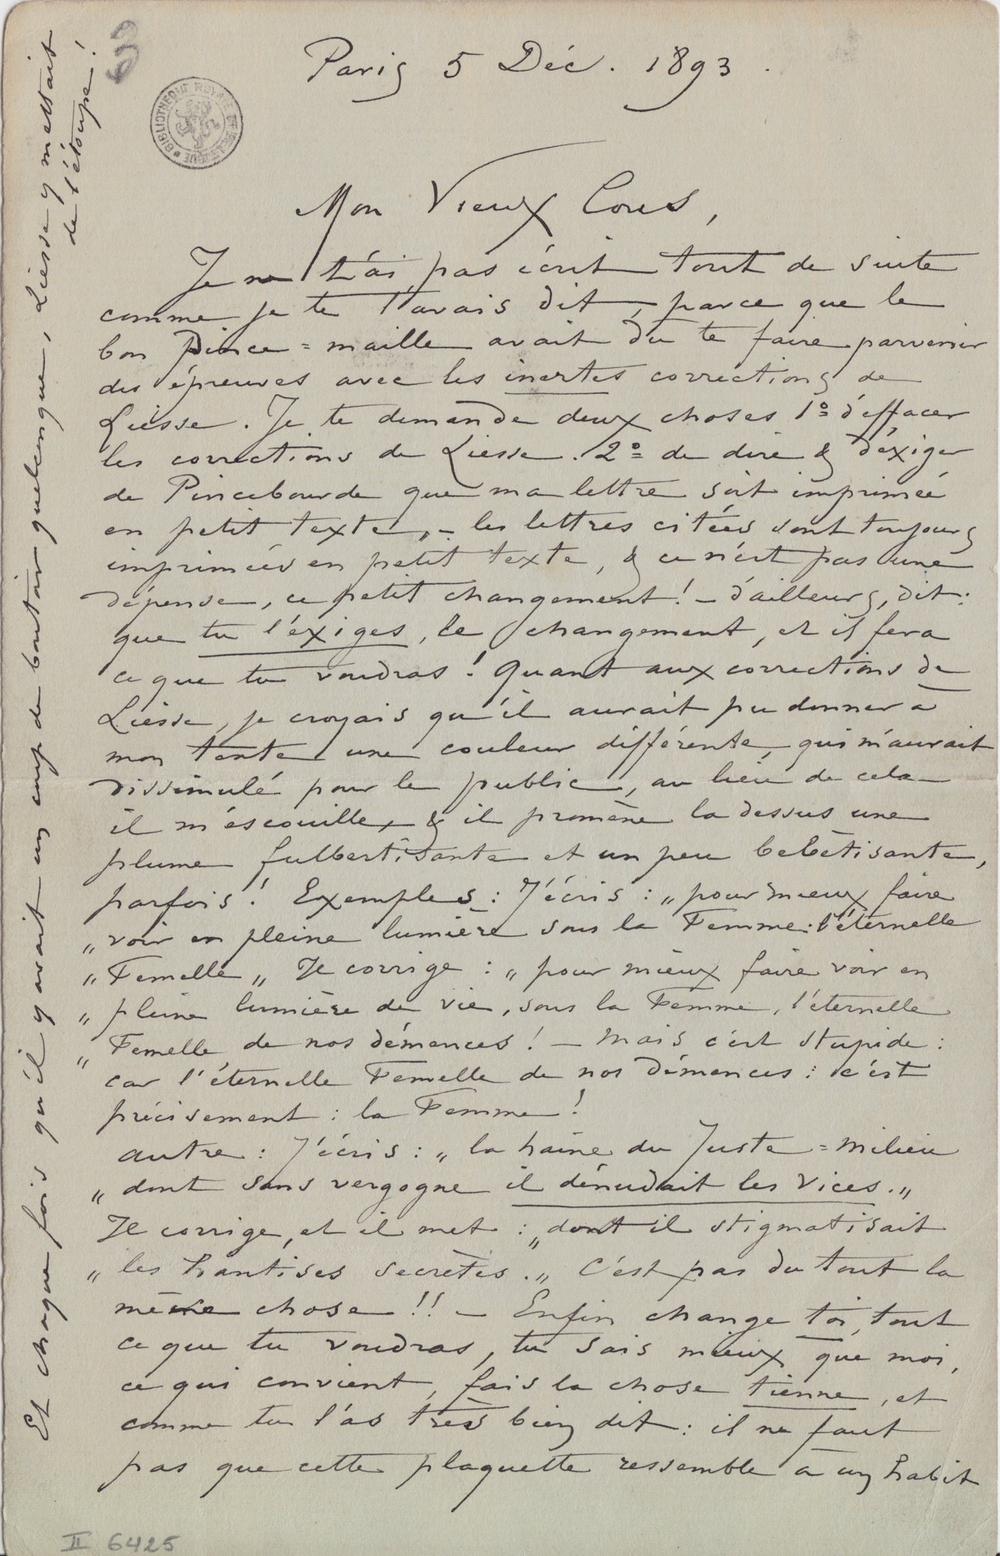 63
Paris 5 Déc. 1893.
BIBLIOTHÈQUE ROYALE DE BELGIQUE
Mon Vieux Cous,
Je ne t'ai pas écrit tout de suite
comme je te l'avais dit, parce que le
bon Pince=maille avait du te faire parvenir
des épreuves avec les inertes corrections de
Liesse. Je te demande deux choses 1º d'effacer
les corrections de Liesse. 2º de dire & d'éxiger
de Pincebourde que ma lettre soit imprimée
en petit texte, – les lettres citées sont toujours
imprimées en petit texte, & ce n'est pas une
dépense, ce petit changement! – d'ailleurs, dit:
que tu l'éxiges, le changement, et il fera
ce que tu voudras! Quant aux corrections de
Liesse, je croyais qu'il aurait pu donner à
mon texte une couleur différente, qui m'aurait
dissimulé pour le public, au lieu de cela
il m'escouille, & il promène la dessus une
plume fulbertisante et un peu bebêtisante,
parfois! Exemples: J'écris: „pour mieux faire
„voir en pleine lumière sous la Femme: l'éternelle
„Femelle„ Il corrige: „pour mieux faire voir en
„pleine lumière de vie, sous la Femme, l'éternelle
„Femelle de nos démences! – Mais c'est stupide:
car l'éternelle Femelle de nos démences: c'est
précisement: la Femme!
autre: J'écris: „la haine du Juste=milieu
„dont sans vergogne il dénudait les vices.„
Il corrige, et il met: „dont il stigmatisait
„les hantises secrètes.„ C'est pas du tout la
même chose!! – Enfin change toi, tout
ce que tu voudras, tu sais mieux que moi,
ce qui convient, fais la chose tienne, et
comme tu l'as très bien dit: il ne faut
pas que cette plaquette ressemble à un habit
Et chaque fois qu'il y avait un coup de boutoir quelconque, Liesse y mettait
de l'étoupe!
II 6425